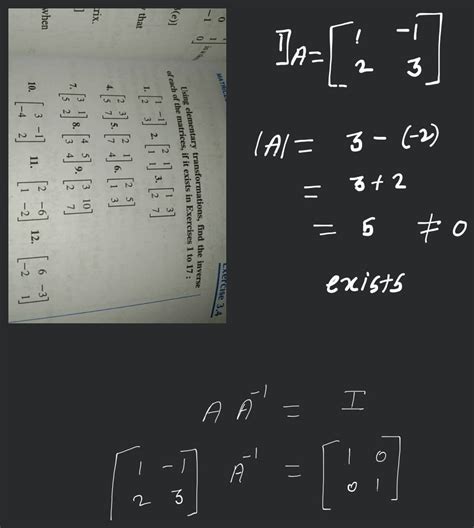 MATRICES
Exercise 3.4
Using elementary transformations, find the inverse
of each of the matrices, if it exists in Exercises 1 to 17 :
1. [1 -1
2 3] 2. [2 1
1 1] 3. [1 3
2 7]
4. [2 3
5 7] 5. [2 1
7 4] 6. [2 5
1 3]
7. [3 1
5 2] 8. [4 5
3 4] 9. [3 10
2 7]
10. [3 -1
-4 2] 11. [2 -6
1 -2] 12. [6 -3
-2 1]
that
when
1] A = [1 -1
2 3]
|A| = 3 - (-2)
= 3 + 2
= 5 ≠ 0
exists
A A⁻¹ = I
[1 -1
2 3] A⁻¹ = [1 0
0 1]